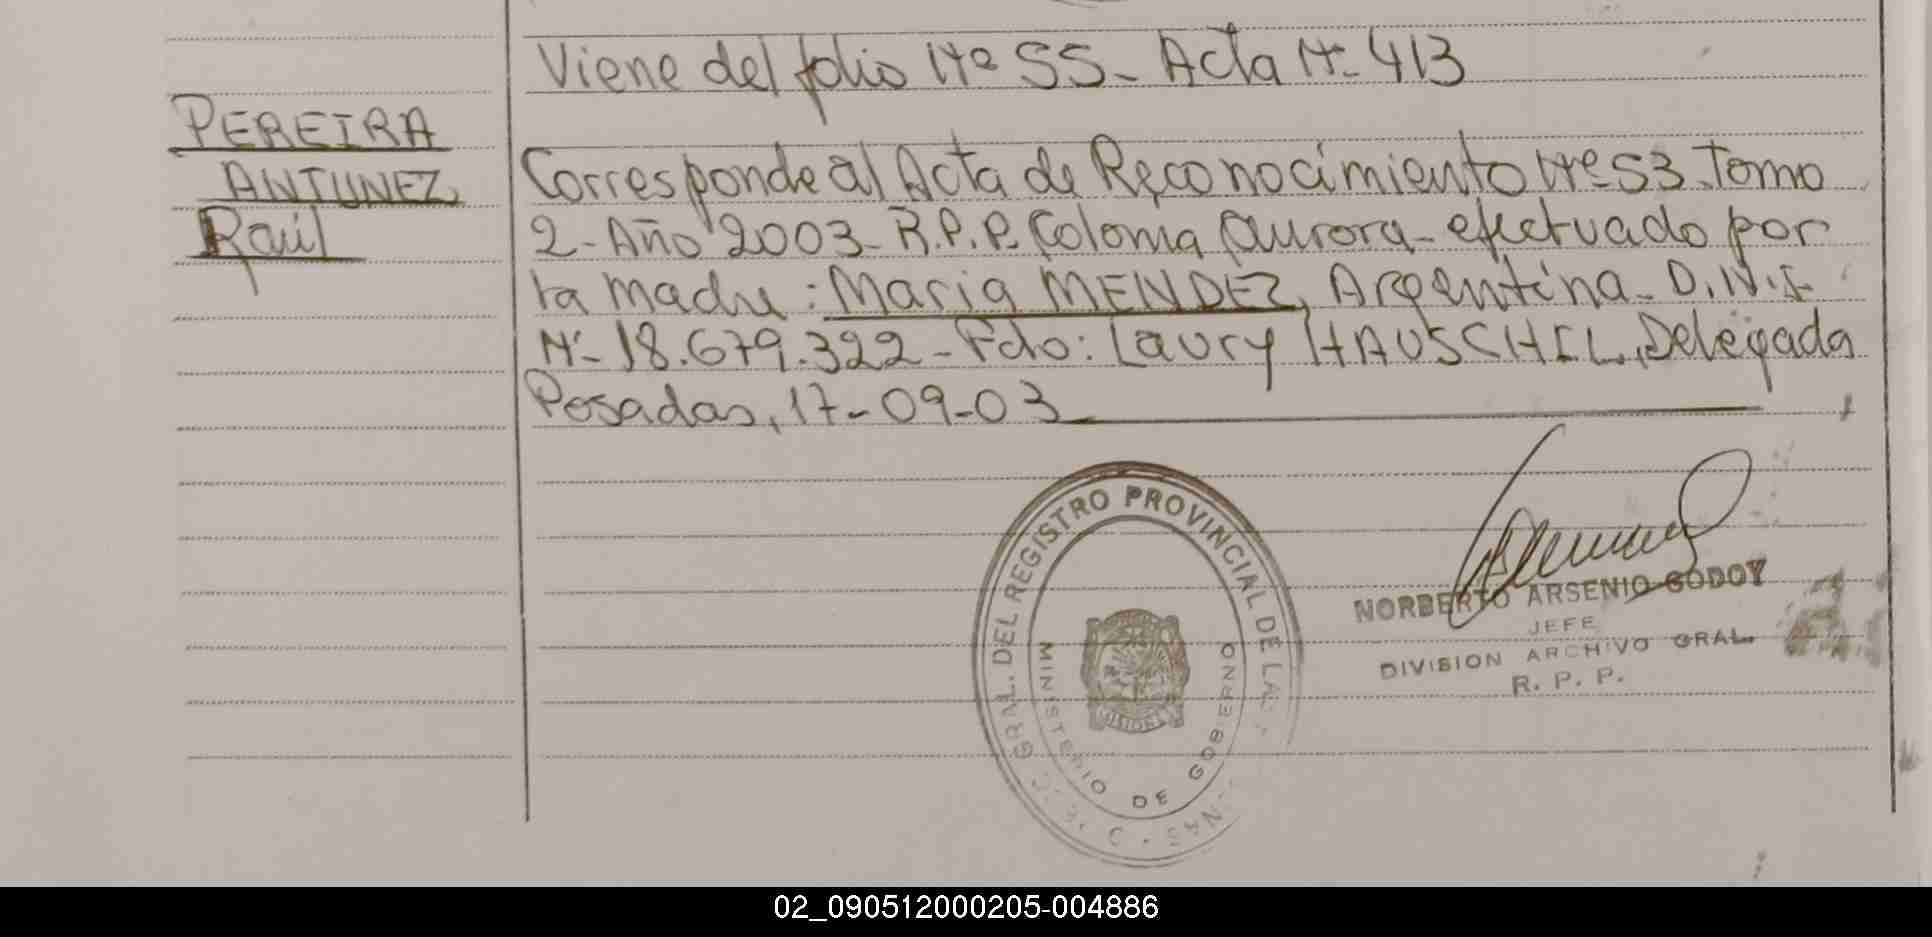 Viene del folio Nº 55 - Acta Nº 413
PEREIRA
ANTUNEZ
Raúl
Corresponde al Acta de Reconocimiento Nº 53. Tomo
2 - Año 2003 - R.P.P. Colonia Aurora - efectuado por
la madre: Maria MENDEZ, Argentina - D.N.I
Nº - 18.679.322 - Fdo: Laury HAUSCHIL, Delegada
Posadas, 17-09-03
GRAL. DEL REGISTRO PROVINCIAL DE LA
MINISTERIO DE GOBIERNO
MISIONES
NORBERTO ARSENIO GODOY
JEFE
DIVISION ARCHIVO GRAL.
R. P. P.
02_090512000205-004886